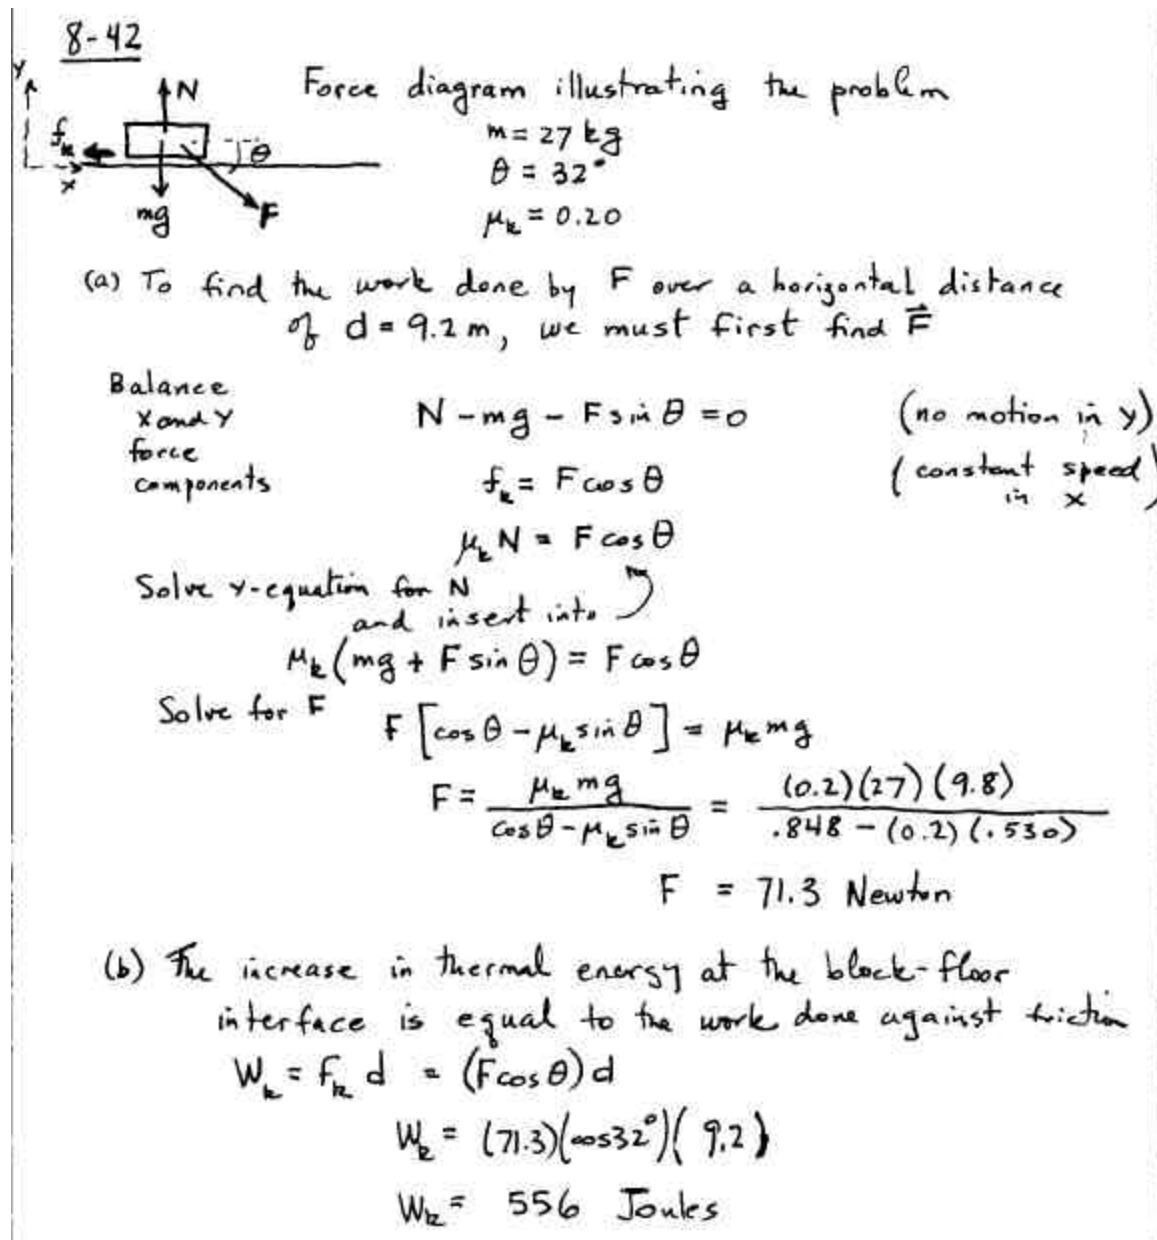 8-42
Y
N
Force diagram illustrating the problem
fk
θ
m = 27 kg
x
θ = 32°
mg
F
μk = 0.20
(a) To find the work done by F over a horizontal distance
of d = 9.2 m, we must first find F⃗
Balance
X and Y
force
components
N - mg - F sin θ = 0
(no motion in y)
fk = F cos θ
(constant speed
in x)
μk N = F cos θ
Solve y-equation for N
and insert into
μk (mg + F sin θ) = F cos θ
Solve for F
F [cos θ - μk sin θ] = μk mg
F = μk mg / cos θ - μk sin θ = (0.2)(27)(9.8) / .848 - (0.2)(.530)
F = 71.3 Newton
(b) The increase in thermal energy at the block-floor
interface is equal to the work done against friction
Wk = fk d = (F cos θ) d
Wk = (71.3)(cos 32°)(9.2)
Wk = 556 Joules